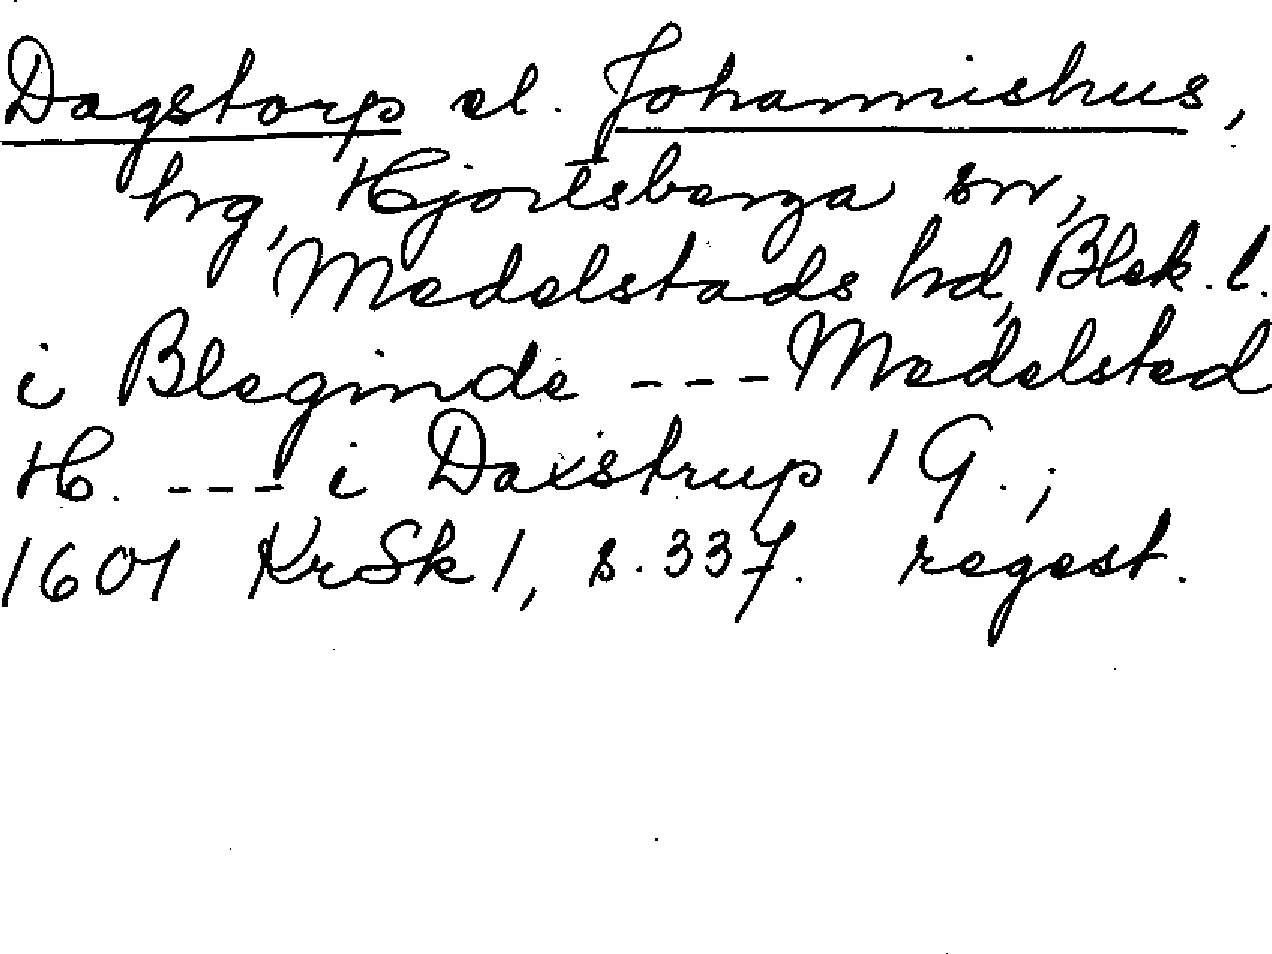 Dagstorp el. Johannishus,
hrg, Hjortsberga sn,
Medelstads hd, Blek. l.
i Bleginde --- Medelsted
H. --- i Daxstrup 1 G.;
1601 KrSk 1, s. 337. regest.